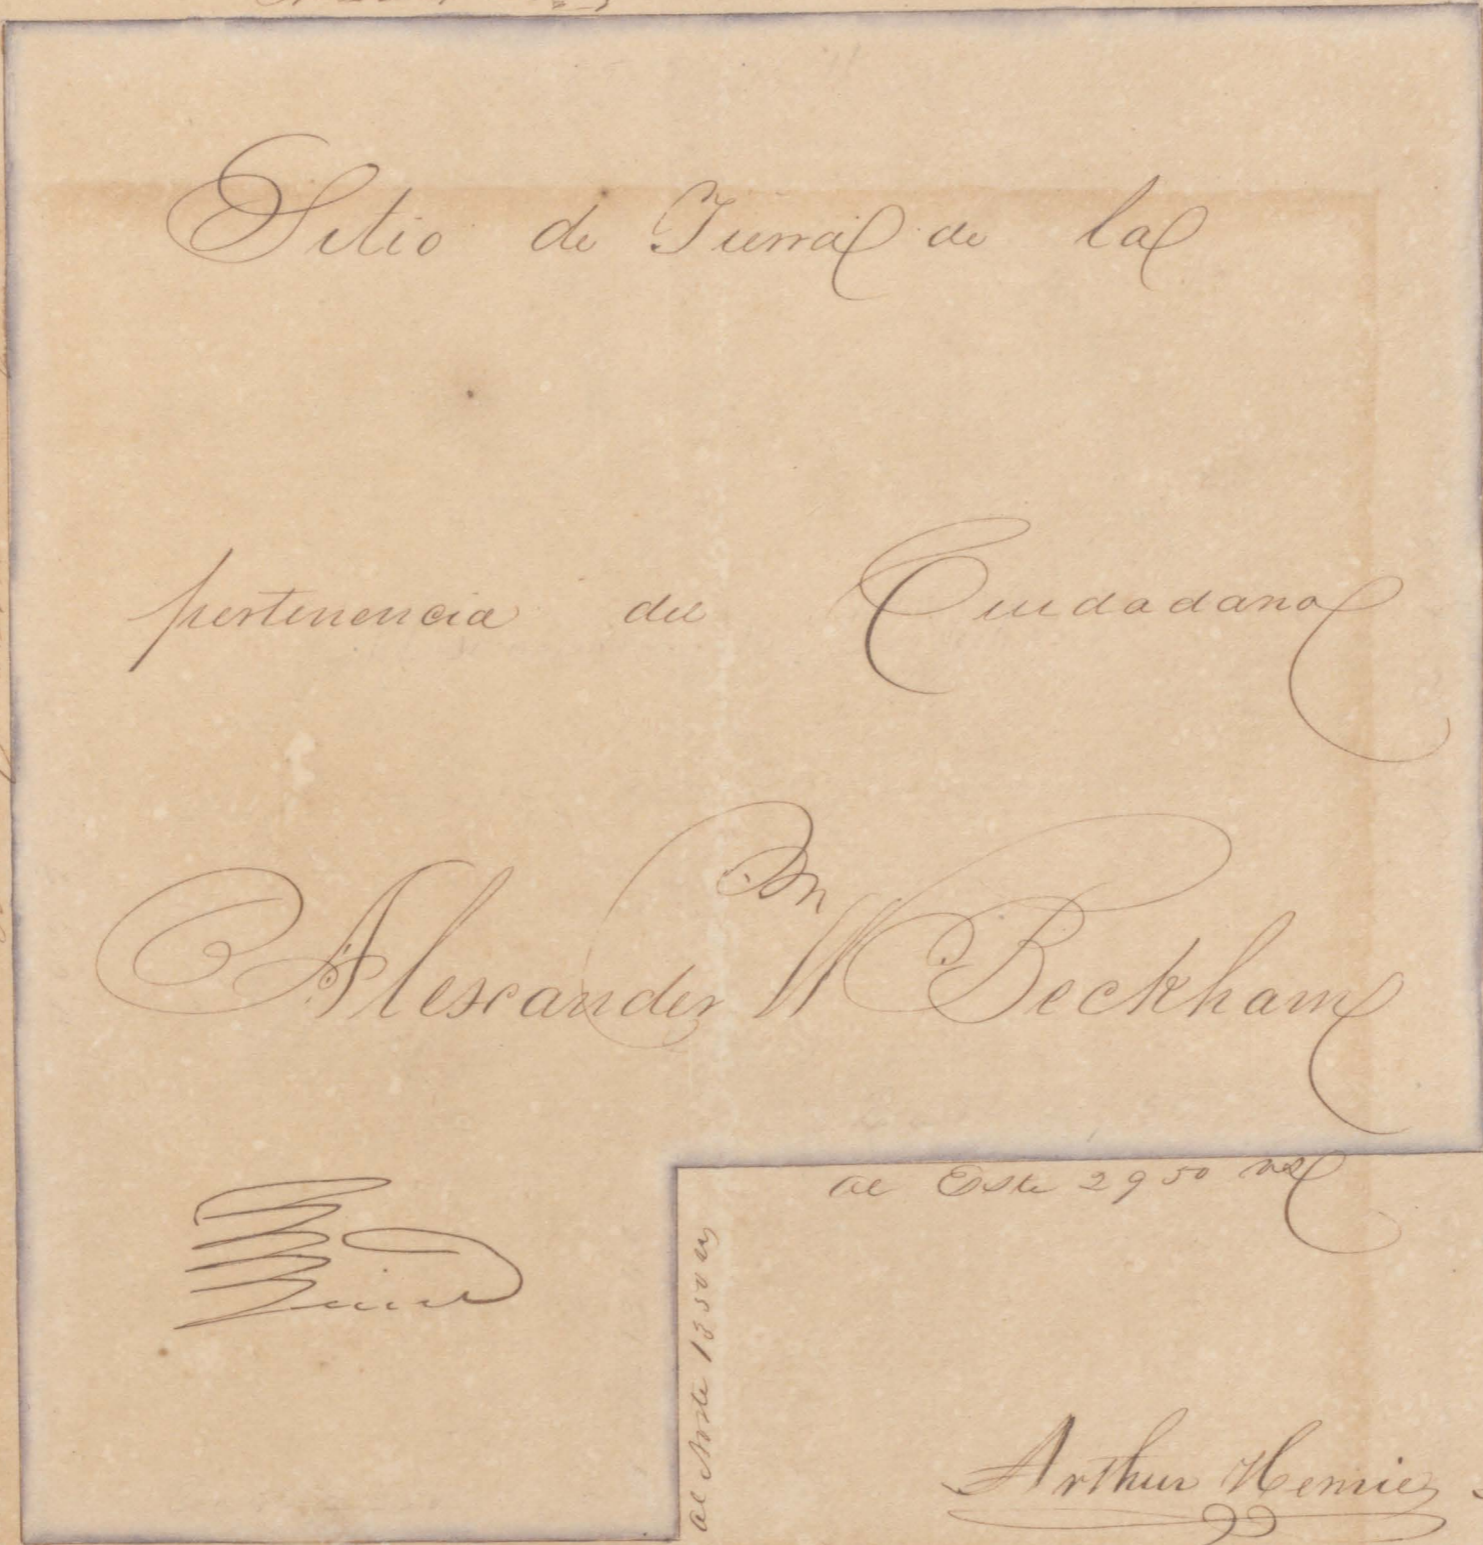 Sitio de Tierra de la
pertenencia del Ciudadano
Alexander W Beckham
al Este 2950 vs
al Norte 1350 vs
Arthur Henrie